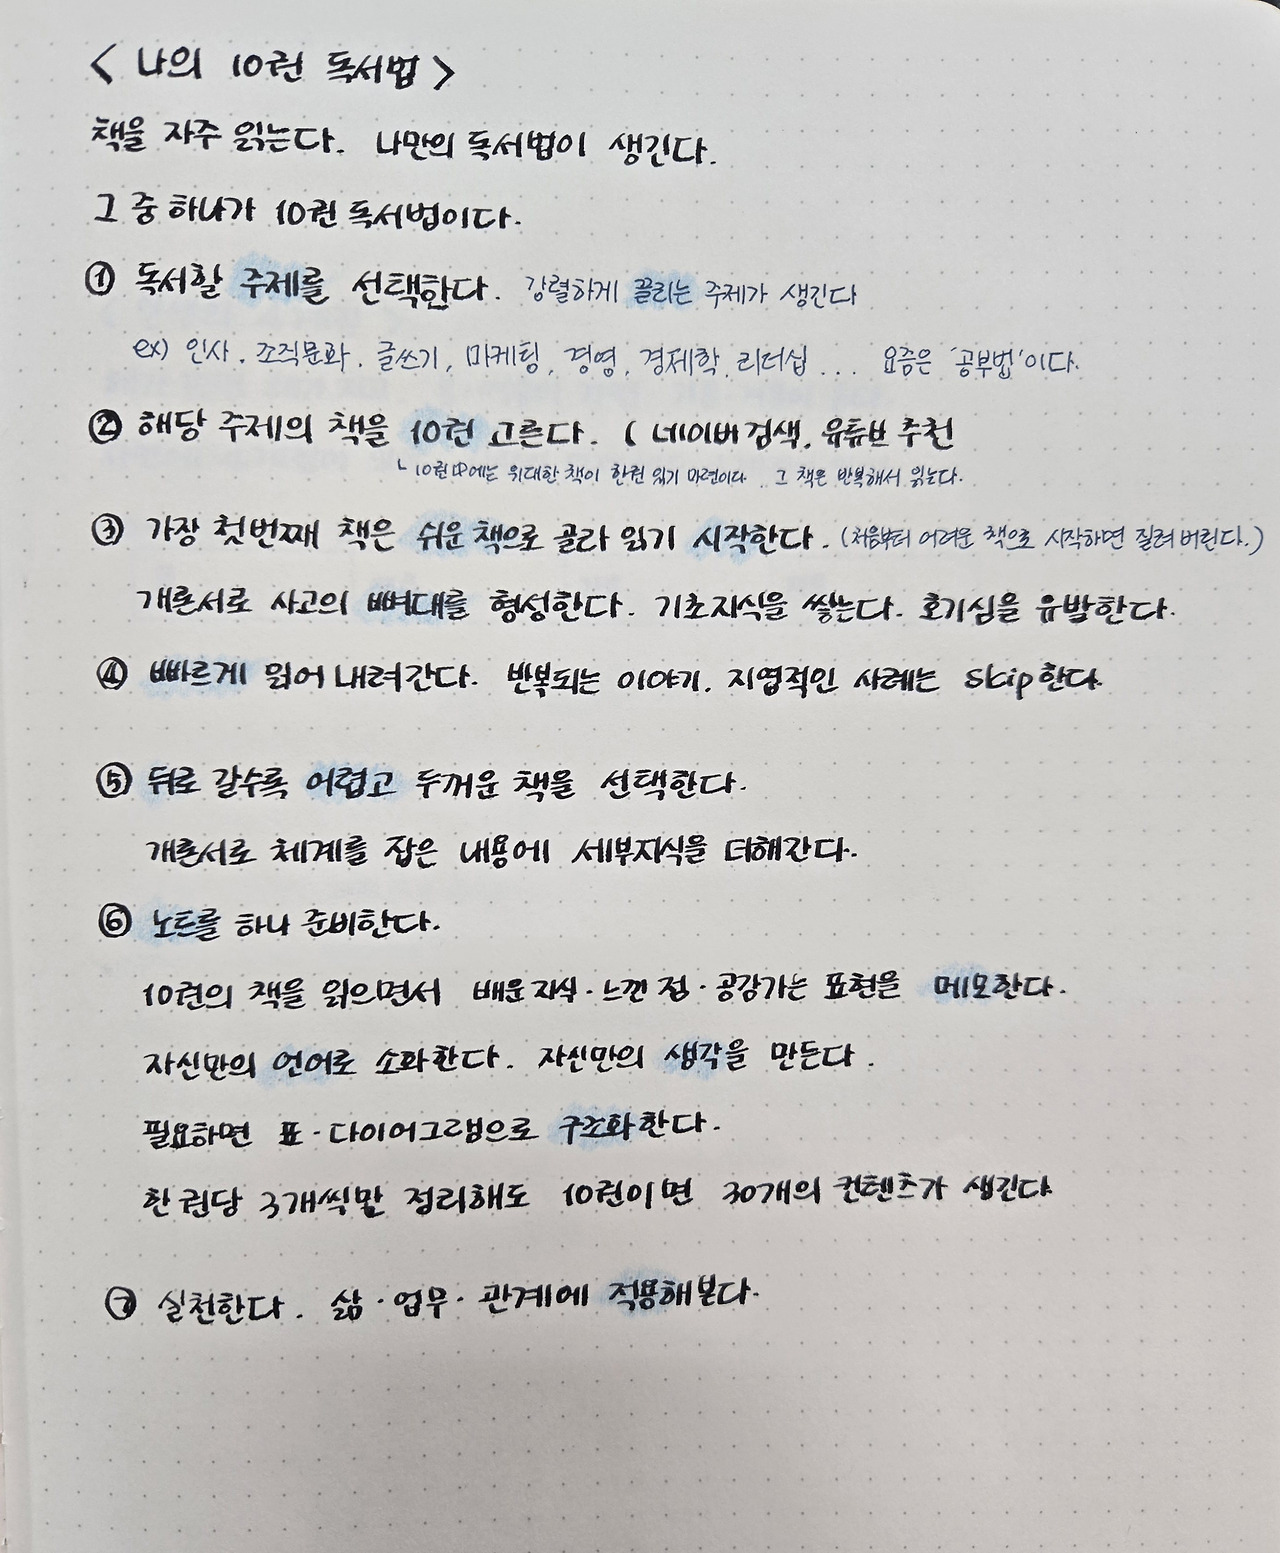 < 나의 10권 독서법 >
책을 자주 읽는다. 나만의 독서법이 생긴다.
그 중 하나가 10권 독서법이다.
① 독서할 주제를 선택한다. 강렬하게 끌리는 주제가 생긴다
ex) 인사, 조직문화, 글쓰기, 마케팅, 경영, 경제학, 리더십 ... 요즘은 '공부법'이다.
② 해당 주제의 책을 10권 고른다. ( 네이버 검색, 유튜브 추천
└ 10권 中에는 위대한 책이 한권 있기 마련이다. 그 책은 반복해서 읽는다.
③ 가장 첫번째 책은 쉬운 책으로 골라 읽기 시작한다. (처음부터 어려운 책으로 시작하면 질려버린다.)
개론서로 사고의 뼈대를 형성한다. 기초지식을 쌓는다. 호기심을 유발한다.
④ 빠르게 읽어 내려간다. 반복되는 이야기, 지엽적인 사례는 skip한다.
⑤ 뒤로 갈수록 어렵고 두꺼운 책을 선택한다.
개론서로 체계를 잡은 내용에 세부지식을 더해간다.
⑥ 노트를 하나 준비한다.
10권의 책을 읽으면서 배운 지식·느낀 점·공감가는 표현을 메모한다.
자신만의 언어로 소화한다. 자신만의 생각을 만든다.
필요하면 표·다이어그램으로 구조화한다.
한 권당 3개씩만 정리해도 10권이면 30개의 컨텐츠가 생긴다
⑦ 실천한다. 삶·업무·관계에 적용해본다.